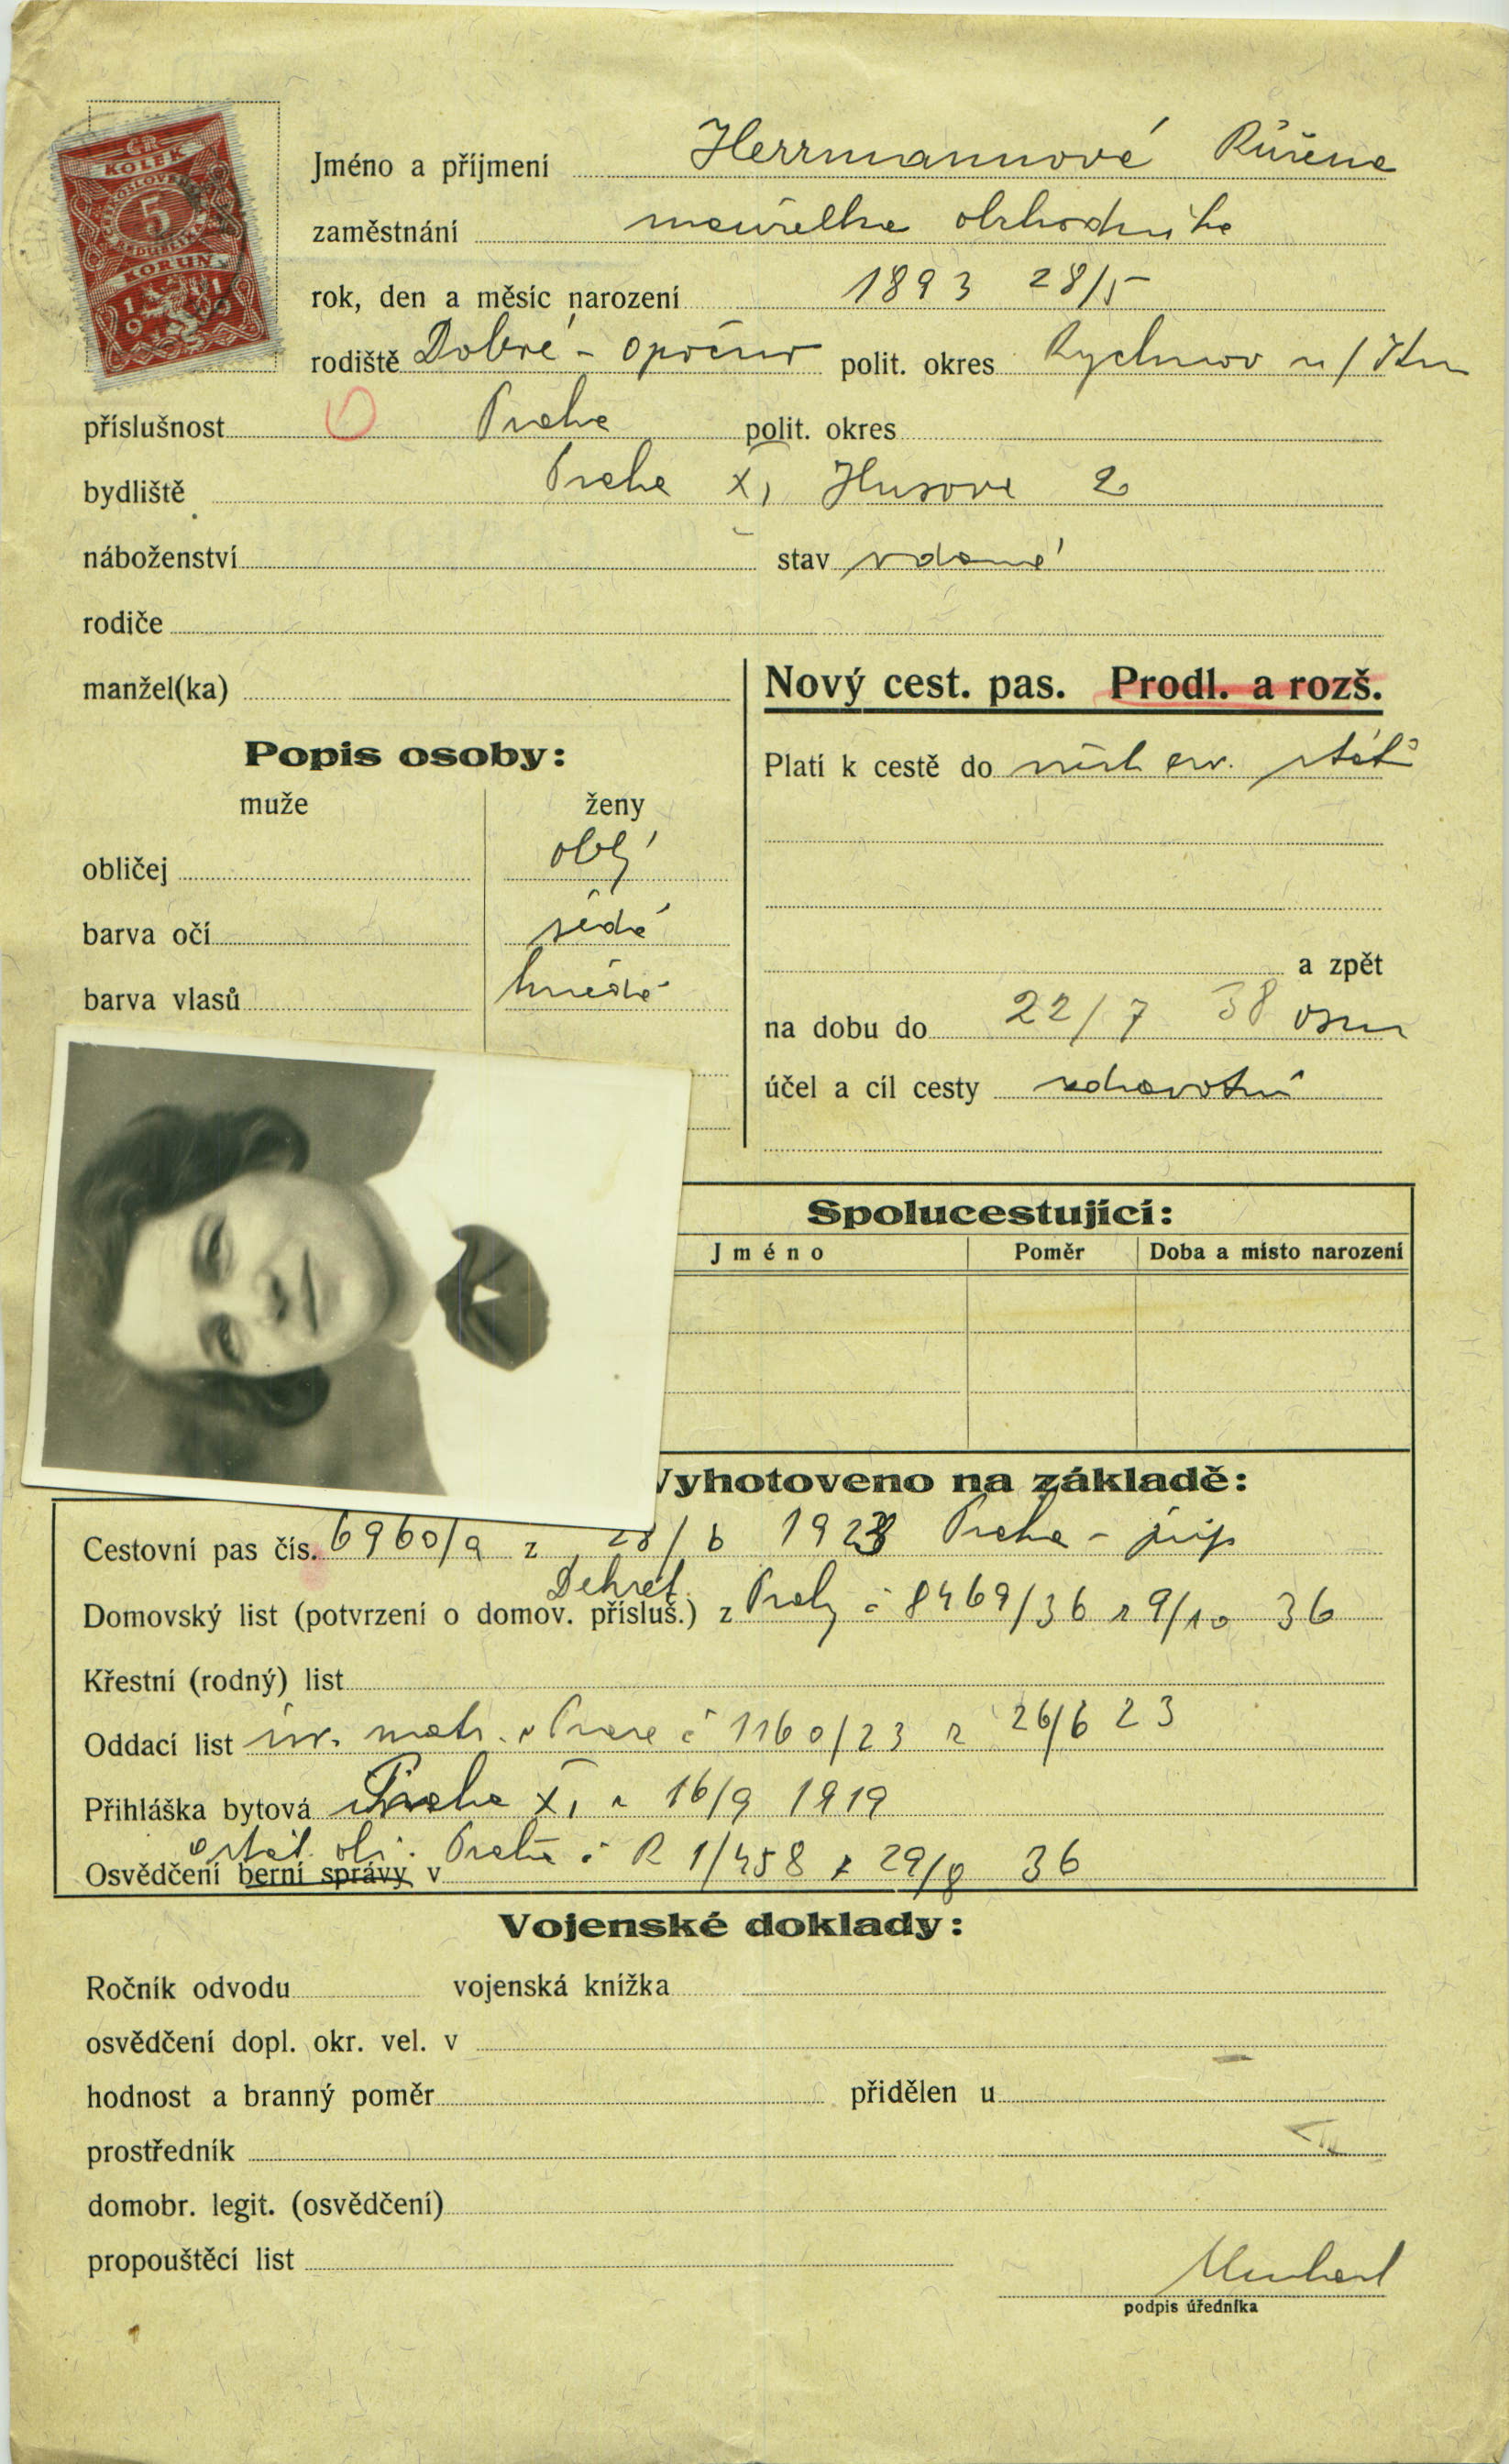 KOLEK
5
KORUN
Jméno a příjmení Herrmannová Růžena
zaměstnání manželka obchodníka
rok, den a měsíc narození 1893 28/5
rodiště Dobré - Opočno polit. okres Rychnov n/Kn
příslušnost Praha polit. okres
bydliště Praha XI, Husova 2
náboženství stav vdaná
rodiče
manžel(ka)
Nový cest. pas. Prodl. a rozš.
Popis osoby:
Platí k cestě do všech evr. států
muže ženy
obličej oblý
barva očí šedé
barva vlasů hnědé
a zpět
na dobu do 22/7 38 osm
účel a cíl cesty zdravotní
Spolucestující:
Jméno Poměr Doba a místo narození
Vyhotoveno na základě:
Cestovní pas čís. 6960/9 z 28/6 1923 Praha -
Dekret
Domovský list (potvrzení o domov. přísluš.) z Prahy č 8469/36 z 9/10 36
Křestní (rodný) list
Oddací list matr. v Praze č 1160/23 z 26/6 23
Přihláška bytová Praha XI, z 16/9 1919
o stát. obč.
Osvědčení berní správy v Praha č R 1/458 z 29/9 36
Vojenské doklady:
Ročník odvodu vojenská knížka
osvědčení dopl. okr. vel. v
hodnost a branný poměr přidělen u
prostředník
domobr. legit. (osvědčení)
propouštěcí list
podpis úředníka